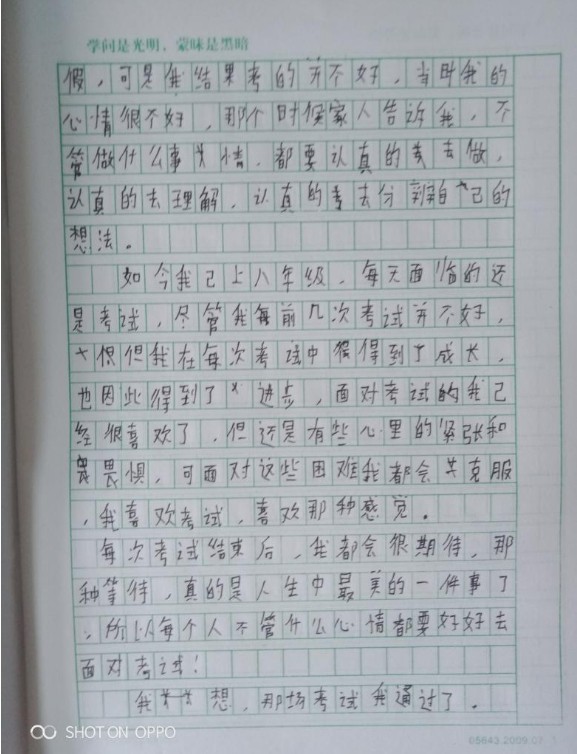 学问是光明，蒙昧是黑暗
假，可是我结果考的并不好，当时我的
心情很不好，那个时候家人告诉我，不
管做什么事情，都要认真的去做，
认真的去理解，认真的去分辨自己的
想法。
如今我已上八年级，每天面临的还
是考试，尽管我每前几次考试并不好，
但我在每次考试中得到了成长，
也因此得到了进步，面对考试的我已
经很喜欢了，但还是有些心里的紧张和
畏惧，可面对这些困难我都会克服
，我喜欢考试，喜欢那种感觉。
每次考试结束后，我都会很期待，那
种等待，真的是人生中最美的一件事了
，所以每个人不管什么心情都要好好去
面对考试！
我想，那场考试我通过了。
SHOT ON OPPO
05643.2009.07